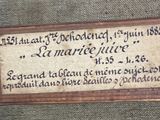 N° 231 du cat. Fte Dehodencq, 1er juin 188
"La mariée juive"
H. 35 - L. 26.
Le grand tableau de même sujet est
reproduit dans livre de Séailles s/ Dehodencq